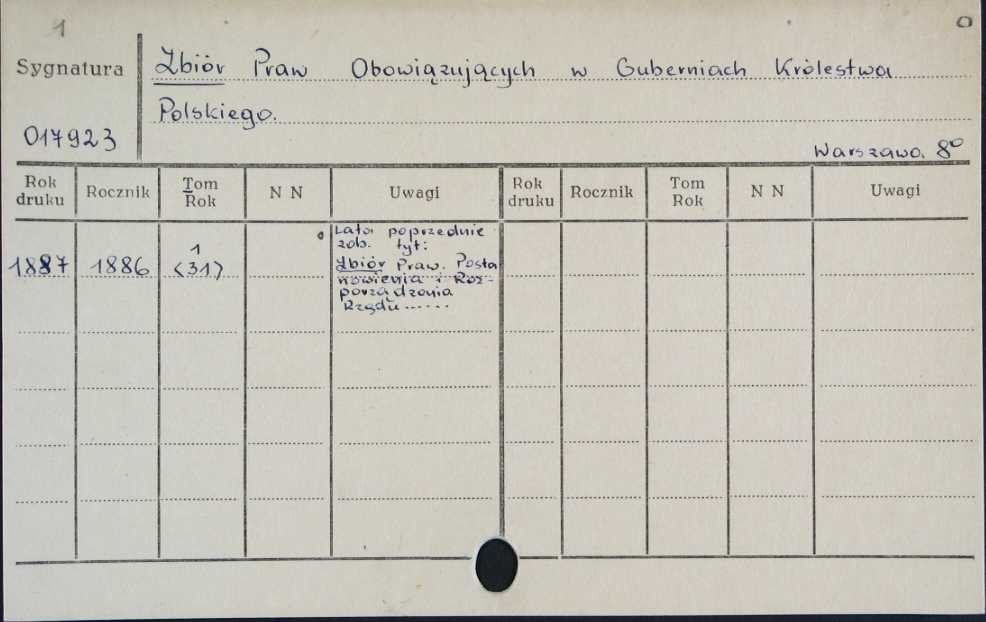 1
o
Sygnatura
Zbiór Praw Obowiązujących w Guberniach Królestwa
Polskiego.
017923
Warszawa. 8º
Rok druku Rocznik Tom Rok N N Uwagi Rok druku Rocznik Tom Rok N N Uwagi
1887 1886 1 (31)
Lata poprzednie
zob. tyt:
Zbiór Praw. Posta
nowienia i Roz-
porządzenia
Rządu......